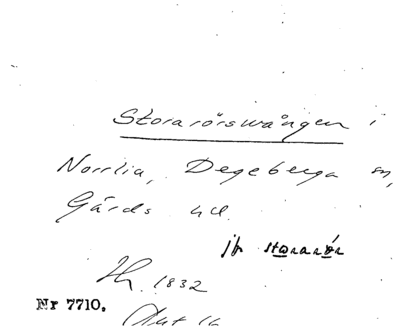 Storarörsvången i
Norrlia, Degeberga sn,
Gärds hd.
jfr stararör
1832
Nr 7710.
Akt 16